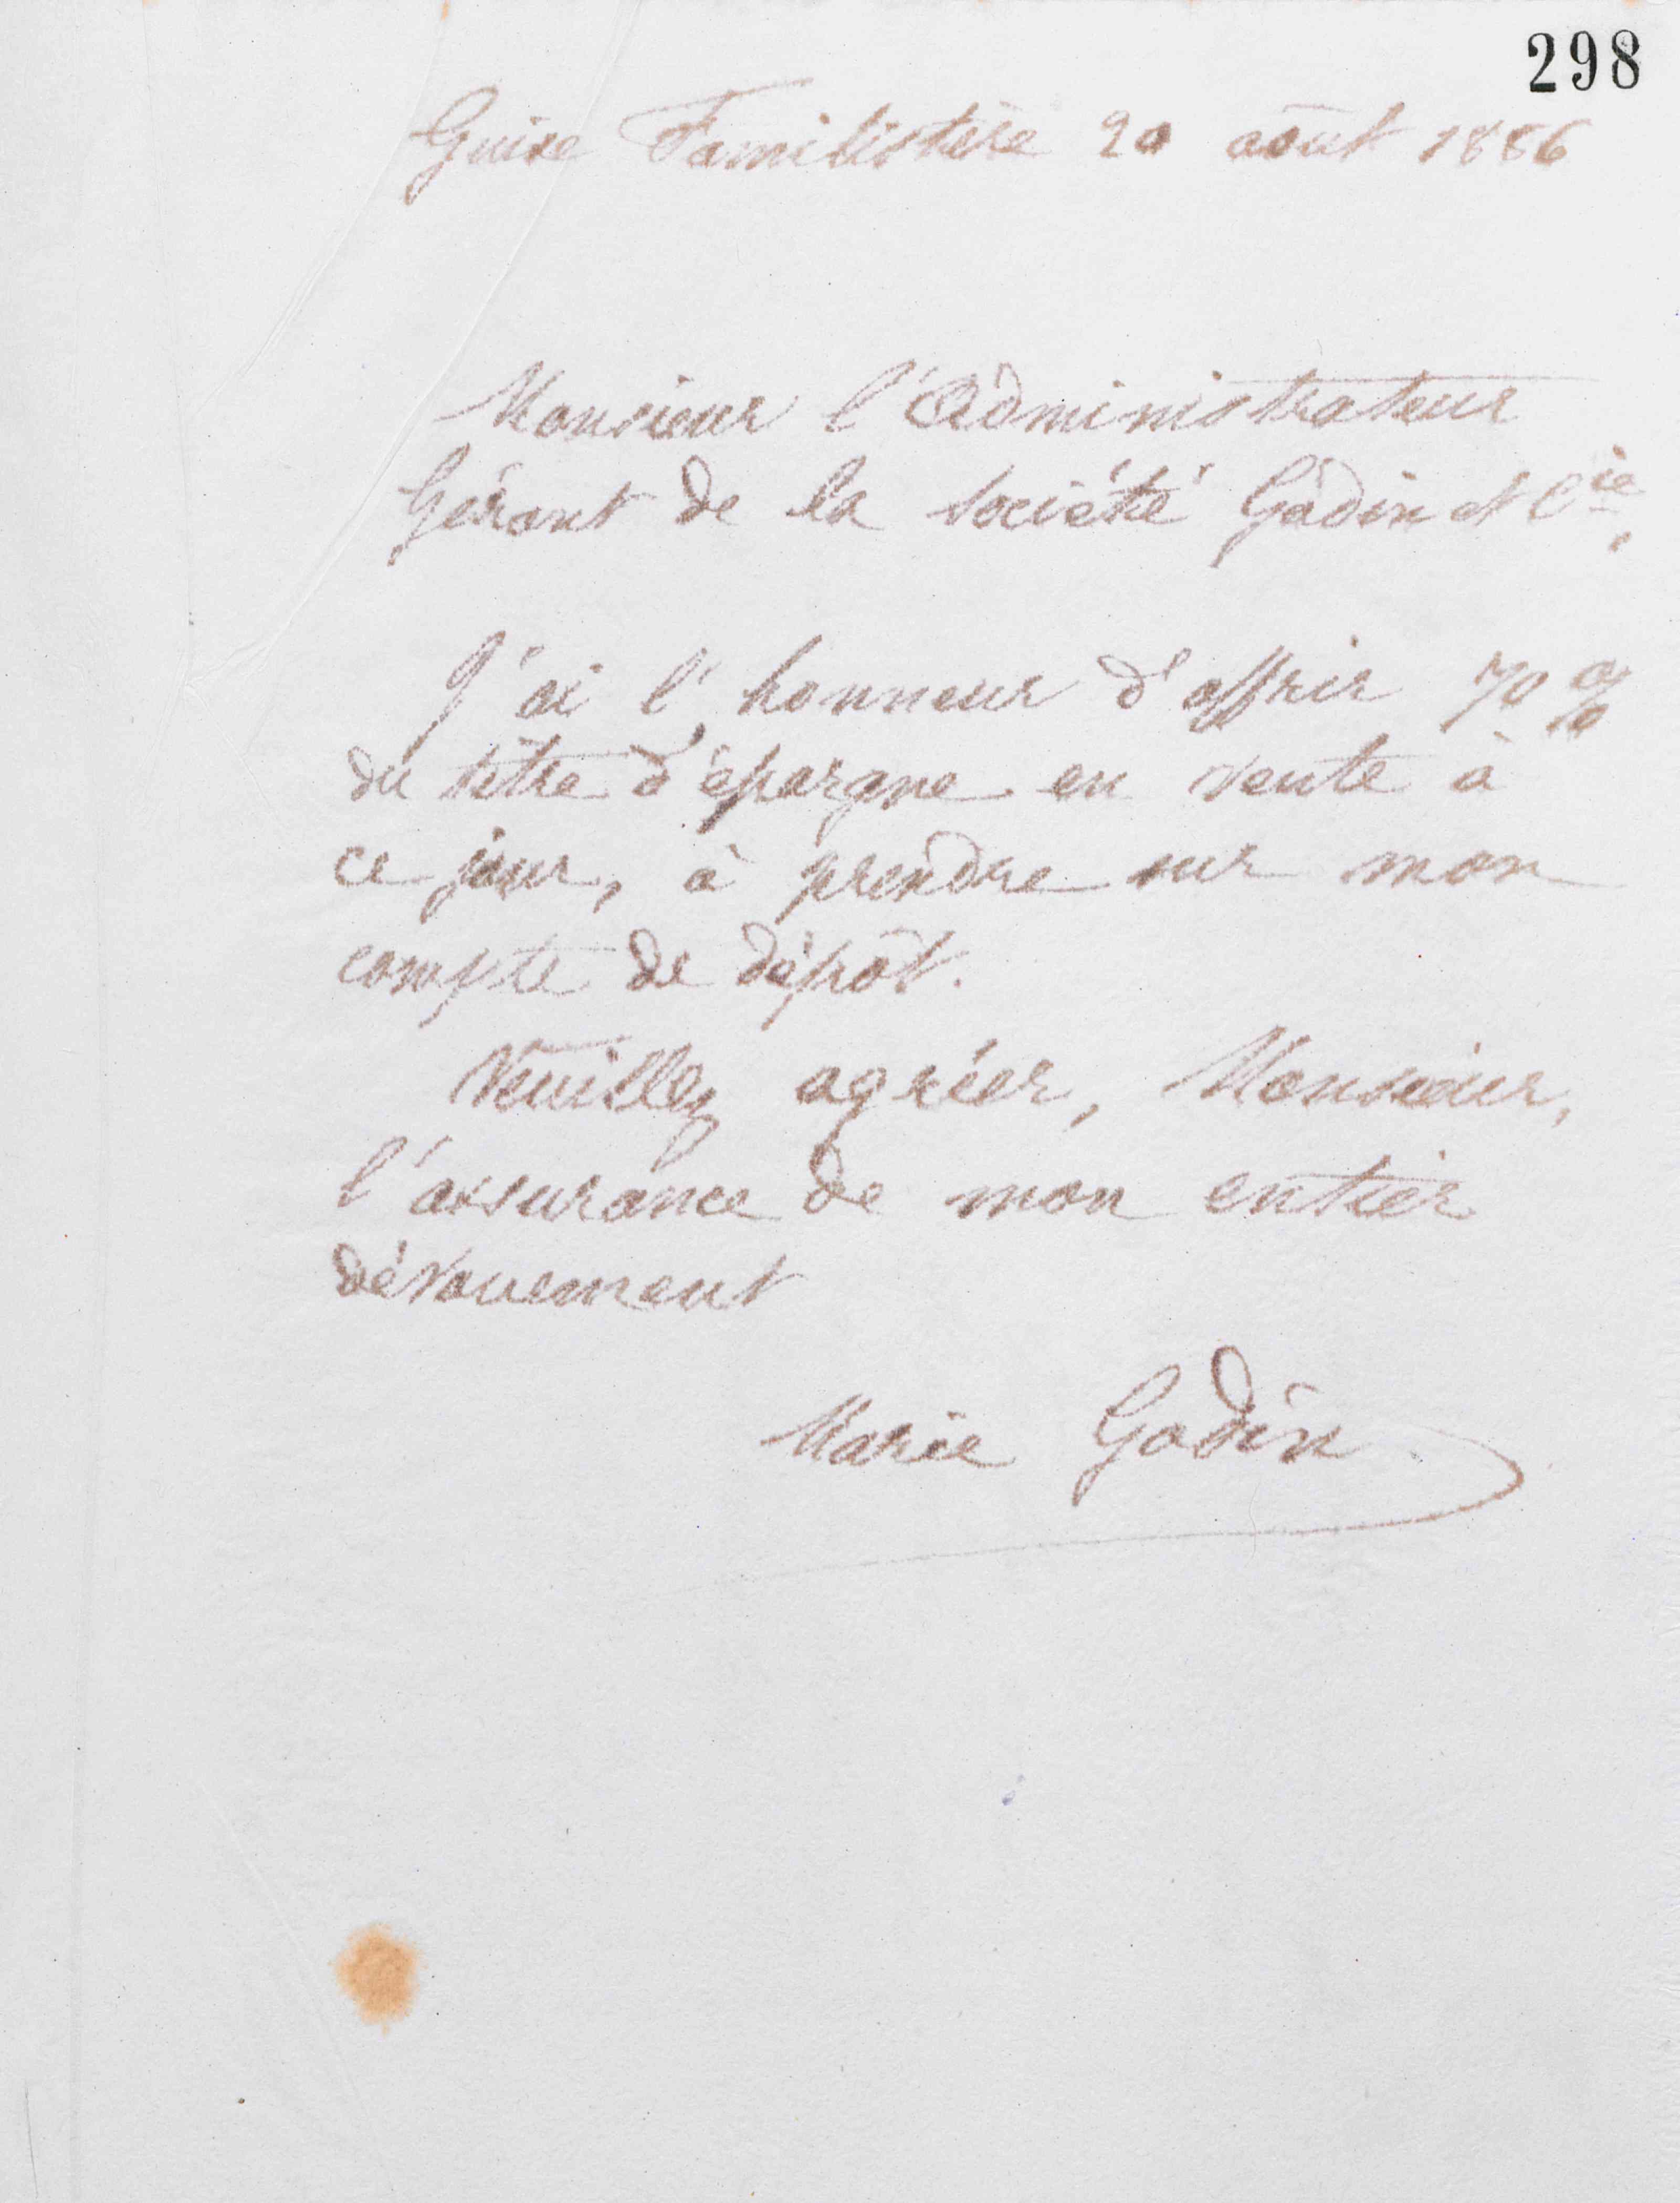 298
Guise Familistère 20 août 1886
Monsieur l'Administrateur
Gérant de la Société Godin et Cie,
J'ai l'honneur d'offrir 70 %
du titre d'épargne en vente à
ce jour, à prendre sur mon
compte de dépôt.
Veuillez agréer, Monsieur,
l'assurance de mon entier
dévouement
Marie Godin